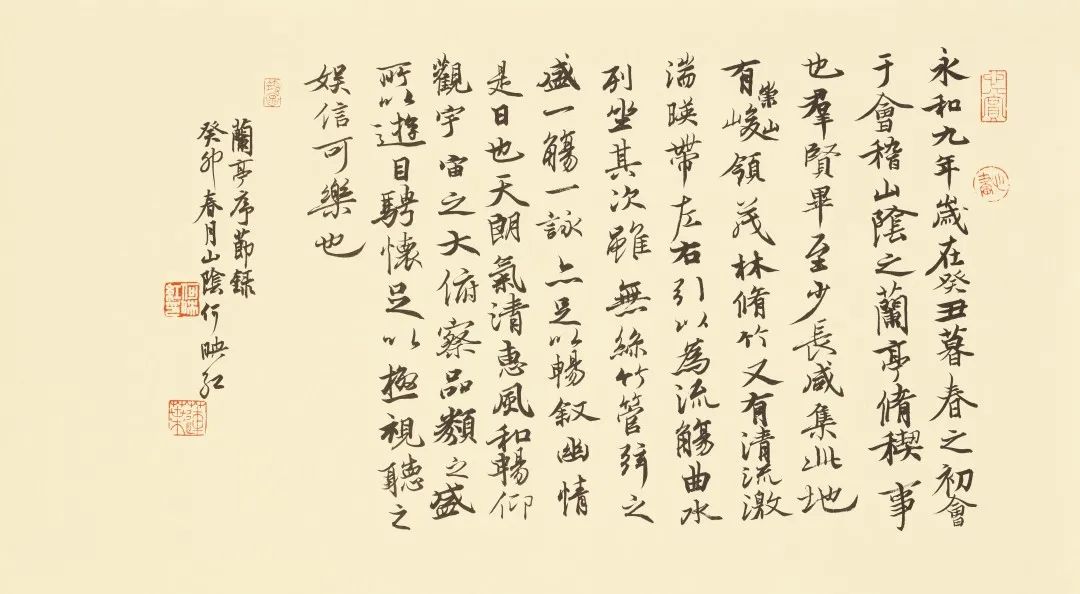 永和九年歲在癸丑暮春之初會
于會稽山陰之蘭亭脩稧事
也羣賢畢至少長咸集此地
有崇山峻領茂林脩竹又有清流激
湍暎帶左右引以為流觴曲水
列坐其次雖無絲竹管弦之
盛一觴一詠亦足以暢敘幽情
是日也天朗氣清惠風和暢仰
觀宇宙之大俯察品類之盛
所以遊目騁懷足以極視聽之
娱信可樂也
蘭亭序節録
癸卯春月山陰何映红